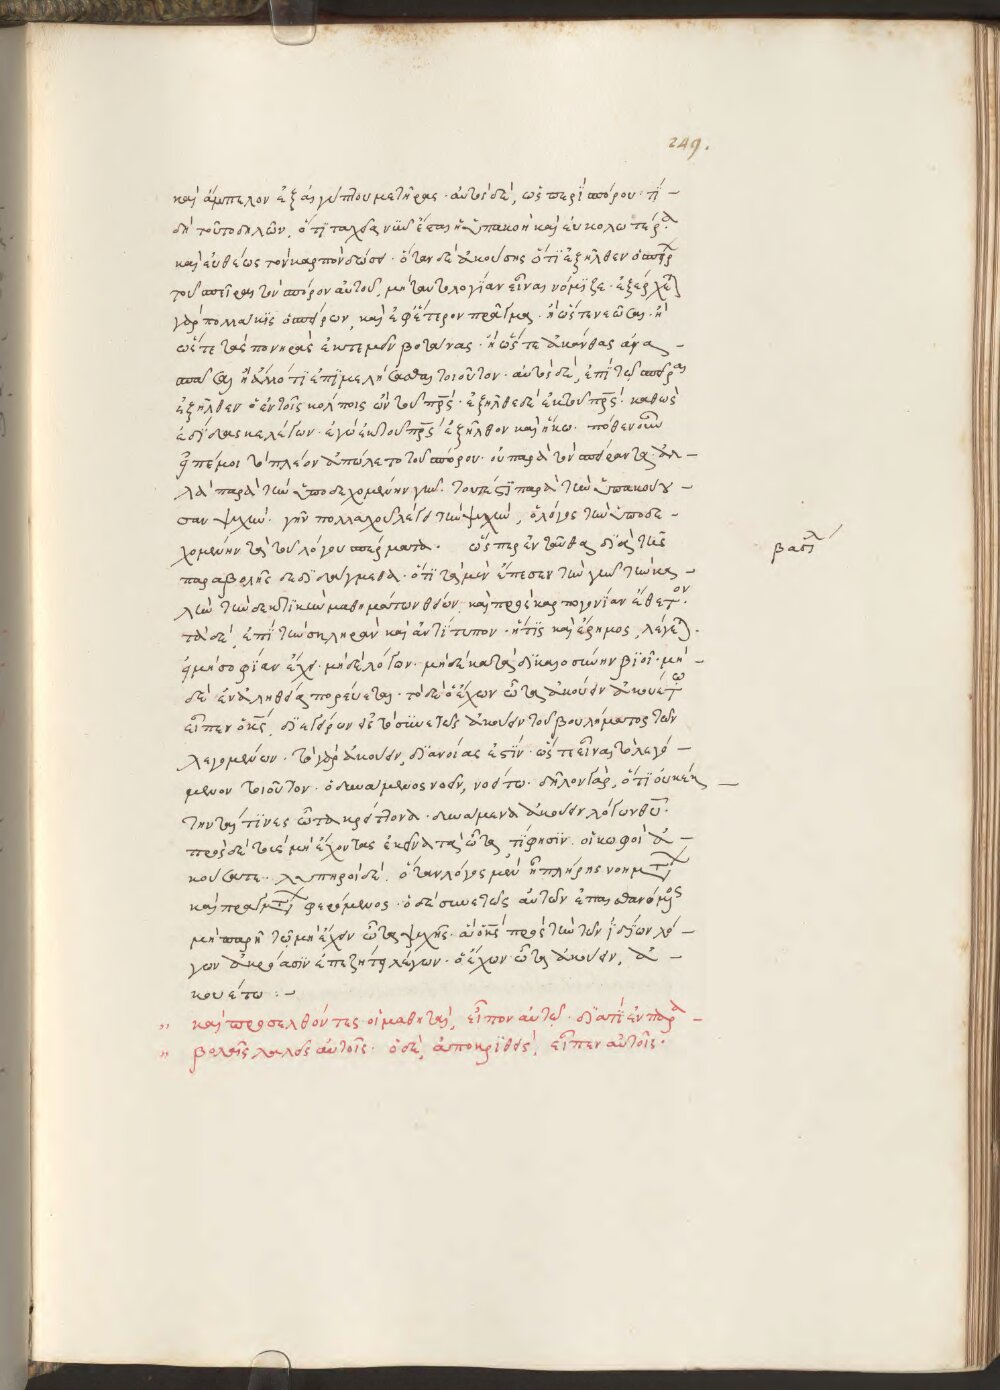 249.
καὶ ἄμπελον ἐξ αἰγύπτου μετῆρας· αὐτὸς δὲ, ὡς περὶ σπόρου· τί
δὴ τοῦτο δηλῶν, ὅτι ταχεῖα νῦν ἔσται ἡ ὑπακοὴ καὶ εὐκολωτέρα
καὶ εὐθέως τὸν καρπὸν δώσει· ὅταν δὲ ἀκούσῃς ὅτι ἐξῆλθεν ὁ σπείρ
τοῦ σπεῖραι τὸν σπόρον αὐτοῦ, μὴ ταυτολογίαν εἶναι νόμιζε· ἐξέρχετ
γὰρ πολλάκις ὁ σπείρων, καὶ ἐφ' ἕτερον πρᾶγμα· ἢ ὥστε νεῶσαι· ἢ
ὥστε τὰς πονηρὰς ἐκτεμεῖν βοτάνας· ἢ ὥστε ἀκάνθας ἀνα
σπάσαι ἢ ἄλλο τι ἐπιμελήσασθαι τοιοῦτον· αὐτὸς δὲ, ἐπὶ τῷ σπεῖραι
ἐξῆλθεν ὁ ἐν τοῖς κόλποις ὢν τοῦ πρς· ἐξῆλθε δὲ ἐκ τοῦ πρς· καθὼς
ἐδίδασκε λέγων· ἐγὼ ἐκ τοῦ πρς ἐξῆλθον καὶ ἥκω· πόθεν οὖν
εἰπέ μοι τὸ πλέον ἀπώλετο τοῦ σπόρου· οὐ παρὰ τὸν σπείραντα· ἀλ
λὰ παρὰ τὴν ὑποδεχομένην γῆν· τουτέστι παρὰ τὴν ὑπακού
σαν ψυχήν· γῆν πολλαχοῦ λέγει τὴν ψυχὴν, ὁ λόγος τὴν ὑποδε
χομένην τὰ τοῦ λόγου σπέρματα· ὥσπερ ἐνταῦθα διὰ τῆς
βασιλ
παραβολῆς δεδιδάγμεθα· ὅτι τὰ μὲν ἔπεσεν τὴν γῆν τὴν κα
λὴν τὴν δεκτικὴν μαθημάτων θείων, καὶ πρὸς καρπογονίαν εὔθετον·
τὰ δὲ, ἐπὶ τὴν σκληρὰν καὶ ἀντίτυπον· ἥτις καὶ ἔρημος λέγετ·
εἰ μὴ σοφίαν ἔχει· μὴ δὲ λόγον· μὴ δὲ κατὰ δικαιοσύνην βιοῖ· μὴ
δὲ ἐν ἀληθείᾳ πορεύεται· τὸ δὲ ὁ ἔχων ὦτα ἀκούειν ἀκουέτω
εἶπεν ὁ κς, διεγείρων εἰς τὸ συνετῶς ἀκούειν τοῦ βουλήματος τῶν
λεγομένων· τὸ γὰρ ἀκούειν, διανοίας ἐστίν· ὥστε εἶναι τὸ λεγό
μενον τοιοῦτον· ὁ δυνάμενος νοεῖν, νοείτω· δῆλον γὰρ, ὅτι οὐκ ἐκέ
κτηντό τινες ὦτα κρείττονα· δυνάμενα ἀκούειν λόγων θυ·
πρὸς δὲ τοὺς μὴ ἔχοντας ἐκεῖνα τὰ ὦτα τί φησιν· οἱ κωφοὶ ἀ
κούσατε· λυπηροὶ δὲ· ὅταν λόγος μὲν ᾖ πλήρης νοημάτ
καὶ πραγμάτ φερόμενος· ὁ δὲ συνετῶς αὐτῶν ἐπαισθανόμενος
μὴ παρῇ τῷ μὴ ἔχειν ὦτα ψυχῆς· ἃ ὁ κς πρὸς τὴν τῶν ἰδίων λό
γων ἀκρόασιν ἐπεζήτει λέγων· ὁ ἔχων ὦτα ἀκούειν, ἀ
κουέτω:
" καὶ προσελθόντες οἱ μαθηταὶ, εἶπον αὐτῷ· διατί ἐν παρα
" βολαῖς λαλεῖς αὐτοῖς· ὁ δὲ, ἀποκριθεὶς, εἶπεν αὐτοῖς·